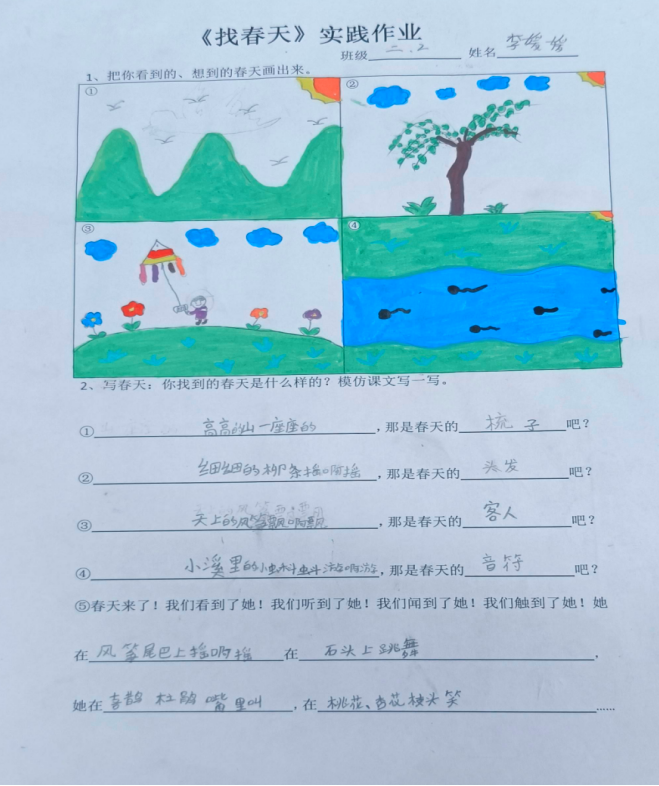 《找春天》实践作业
班级 二.2 姓名 李媛
1、把你看到的、想到的春天画出来。
① ②
③ ④
2、写春天：你找到的春天是什么样的？模仿课文写一写。
① 高高的山一座座的，那是春天的 梳子 吧？
② 细细的柳条摇啊摇，那是春天的 头发 吧？
③ 天上的风筝飘啊飘，那是春天的 客人 吧？
④ 小溪里的小蝌蚪游啊游，那是春天的 音符 吧？
⑤春天来了！我们看到了她！我们听到了她！我们闻到了她！我们触到了她！她
在 风筝尾巴上摇啊摇 在 石头上跳舞，
她在 喜鹊 杜鹃 嘴里叫，在 桃花、杏花枝头笑……